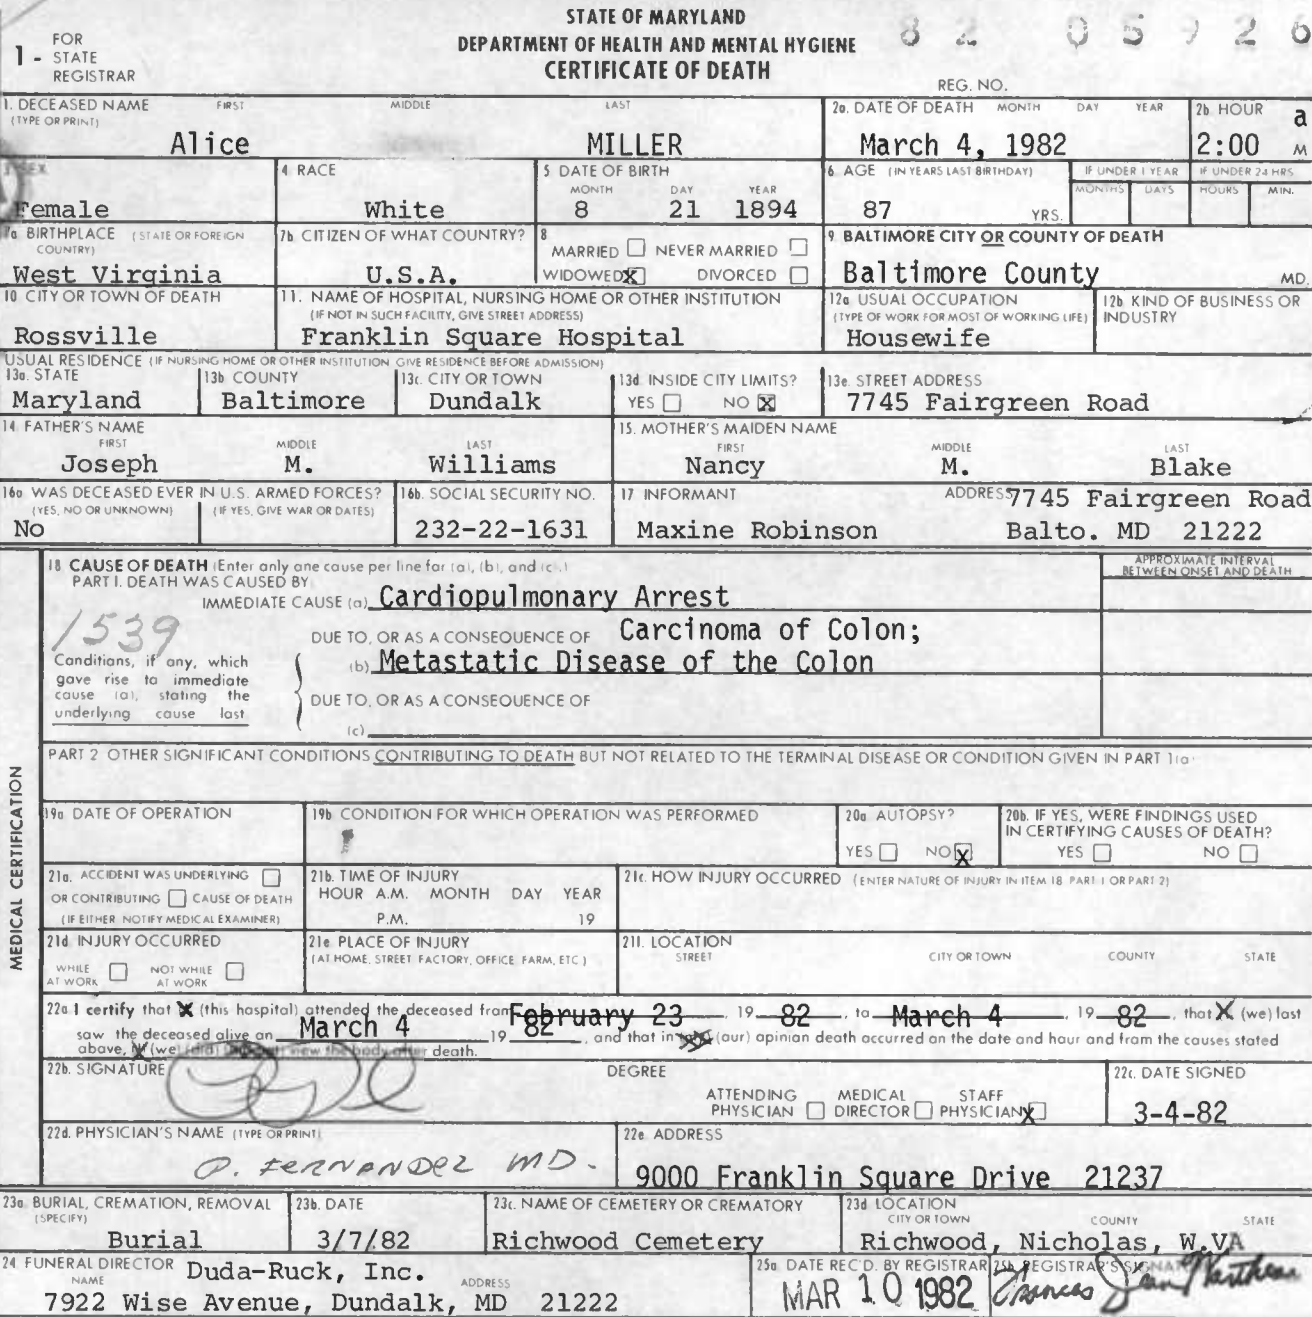 STATE OF MARYLAND
DEPARTMENT OF HEALTH AND MENTAL HYGIENE
CERTIFICATE OF DEATH
1 - FOR STATE REGISTRAR
82 05926
REG. NO.
1. DECEASED NAME FIRST MIDDLE LAST
(TYPE OR PRINT)
Alice MILLER
2a. DATE OF DEATH MONTH DAY YEAR
March 4, 1982
2b. HOUR
2:00 a M
3 SEX
Female
4 RACE
White
5 DATE OF BIRTH
MONTH DAY YEAR
8 21 1894
6 AGE (IN YEARS LAST BIRTHDAY)
87 YRS.
IF UNDER 1 YEAR
MONTHS DAYS
IF UNDER 24 HRS
HOURS MIN.
7a BIRTHPLACE (STATE OR FOREIGN COUNTRY)
West Virginia
7b CITIZEN OF WHAT COUNTRY?
U.S.A.
8
MARRIED NEVER MARRIED
WIDOWED X DIVORCED
9 BALTIMORE CITY OR COUNTY OF DEATH
Baltimore County MD.
10 CITY OR TOWN OF DEATH
Rossville
11. NAME OF HOSPITAL, NURSING HOME OR OTHER INSTITUTION
(IF NOT IN SUCH FACILITY, GIVE STREET ADDRESS)
Franklin Square Hospital
12a USUAL OCCUPATION
(TYPE OF WORK FOR MOST OF WORKING LIFE)
Housewife
12b KIND OF BUSINESS OR INDUSTRY
USUAL RESIDENCE (IF NURSING HOME OR OTHER INSTITUTION GIVE RESIDENCE BEFORE ADMISSION)
13a. STATE
Maryland
13b COUNTY
Baltimore
13c. CITY OR TOWN
Dundalk
13d INSIDE CITY LIMITS?
YES NO X
13e. STREET ADDRESS
7745 Fairgreen Road
14 FATHER'S NAME
FIRST MIDDLE LAST
Joseph M. Williams
15. MOTHER'S MAIDEN NAME
FIRST MIDDLE LAST
Nancy M. Blake
16a WAS DECEASED EVER IN U.S. ARMED FORCES?
(YES, NO OR UNKNOWN) (IF YES, GIVE WAR OR DATES)
No
16b. SOCIAL SECURITY NO.
232-22-1631
17 INFORMANT
Maxine Robinson
ADDRESS 7745 Fairgreen Road
Balto. MD 21222
MEDICAL CERTIFICATION
18 CAUSE OF DEATH (Enter only one cause per line for (a), (b), and (c).)
PART I. DEATH WAS CAUSED BY
IMMEDIATE CAUSE (a) Cardiopulmonary Arrest
APPROXIMATE INTERVAL
BETWEEN ONSET AND DEATH
1539
DUE TO, OR AS A CONSEQUENCE OF Carcinoma of Colon;
(b) Metastatic Disease of the Colon
Conditions, if any, which
gave rise to immediate
cause (a), stating the
underlying cause last
DUE TO, OR AS A CONSEQUENCE OF
(c)
PART 2 OTHER SIGNIFICANT CONDITIONS CONTRIBUTING TO DEATH BUT NOT RELATED TO THE TERMINAL DISEASE OR CONDITION GIVEN IN PART 1(a)
19a DATE OF OPERATION
19b CONDITION FOR WHICH OPERATION WAS PERFORMED
20a AUTOPSY?
YES NO X
20b. IF YES, WERE FINDINGS USED
IN CERTIFYING CAUSES OF DEATH?
YES NO
21a. ACCIDENT WAS UNDERLYING
OR CONTRIBUTING CAUSE OF DEATH
(IF EITHER NOTIFY MEDICAL EXAMINER)
21b. TIME OF INJURY
HOUR A.M. MONTH DAY YEAR
P.M. 19
21c. HOW INJURY OCCURRED (ENTER NATURE OF INJURY IN ITEM 18 PART 1 OR PART 2)
21d INJURY OCCURRED
WHILE AT WORK NOT WHILE AT WORK
21e PLACE OF INJURY
(AT HOME, STREET, FACTORY, OFFICE, FARM, ETC)
21f. LOCATION
STREET CITY OR TOWN COUNTY STATE
22a I certify that X (this hospital) attended the deceased from February 23, 19 82, to March 4, 19 82, that X (we) last
saw the deceased alive on March 4 19 82, and that in (our) opinion death occurred on the date and hour and from the causes stated
above, X (we) (did) view the body after death.
22b. SIGNATURE
DEGREE
ATTENDING PHYSICIAN MEDICAL DIRECTOR STAFF PHYSICIAN X
22c. DATE SIGNED
3-4-82
22d. PHYSICIAN'S NAME (TYPE OR PRINT)
P. FERNANDEZ MD.
22e ADDRESS
9000 Franklin Square Drive 21237
23a BURIAL, CREMATION, REMOVAL
(SPECIFY)
Burial
23b. DATE
3/7/82
23c. NAME OF CEMETERY OR CREMATORY
Richwood Cemetery
23d LOCATION
CITY OR TOWN COUNTY STATE
Richwood, Nicholas, W.VA
24 FUNERAL DIRECTOR
NAME Duda-Ruck, Inc. ADDRESS
7922 Wise Avenue, Dundalk, MD 21222
25a DATE REC'D. BY REGISTRAR
MAR 10 1982
25b REGISTRAR'S SIGNATURE
Frances Jean